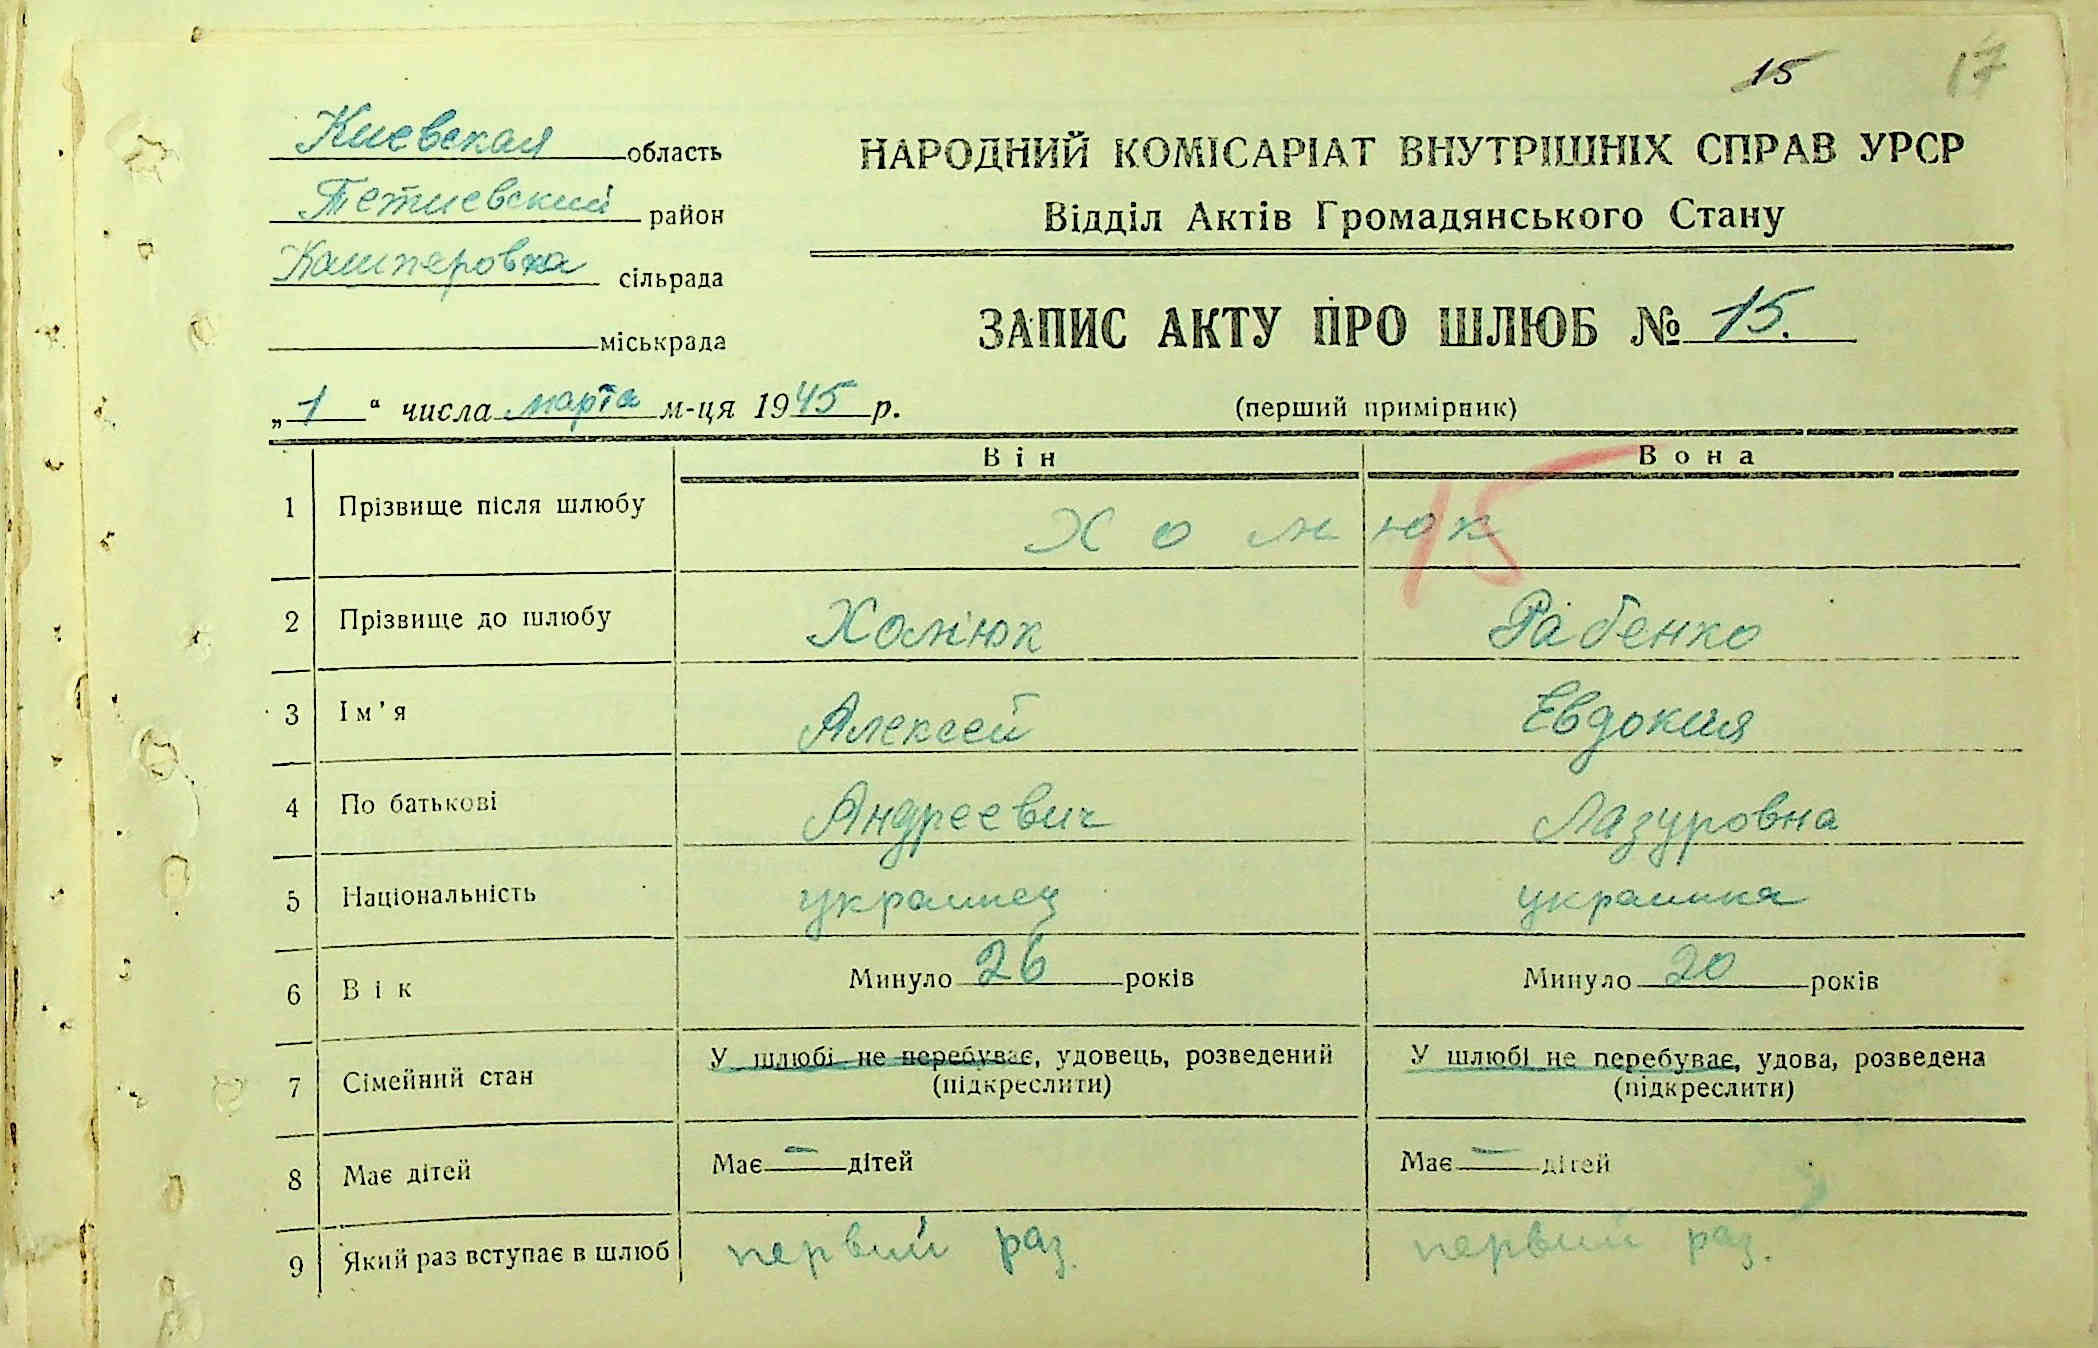 15 17
Киевская область
Тетиевский район
Кашперовка сільрада
міськрада
НАРОДНИЙ КОМІСАРІАТ ВНУТРІШНІХ СПРАВ УРСР
Відділ Актів Громадянського Стану
ЗАПИС АКТУ ПРО ШЛЮБ № 15.
„1“ числа марта м-ця 1945 р.
(перший примірник)
Він Вона
15
1 Прізвище після шлюбу Хомюк
2 Прізвище до шлюбу Хомюк Рабенко
3 Ім'я Алексей Евдокия
4 По батькові Андреевич Лазуровна
5 Національність украинец украинка
6 Вік Минуло 26 років Минуло 20 років
7 Сімейний стан У шлюбі не перебуває, удовець, розведений У шлюбі не перебуває, удова, розведена
(підкреслити) (підкреслити)
8 Має дітей Має — дітей Має — дітей
9 Який раз вступає в шлюб первий раз. первий раз.